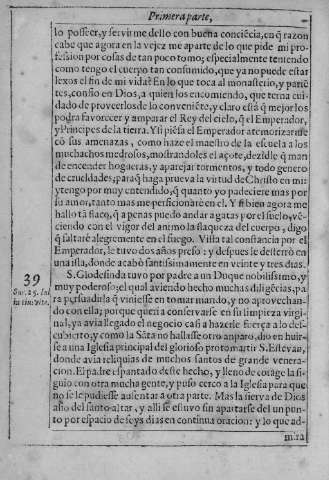 Primera parte,
lo posseer, y servirme dello con buena conciẽcia, en q̃ razon
cabe que agora en la vejez me aparte de lo que pide mi pro
fession por cosas de tan poco tomo; especialmente teniendo
como tengo el cuerpo tan consumido, que ya no puede estar
lexos el fin de mi vida? En lo que toca al monasterio, y pariẽ
tes, confio en Dios, a quien los encomiendo, que terna cui-
dado de proveerlos de lo conveniẽte, y claro està q̃ mejor los
podra favorecer y amparar el Rey del cielo, q̃ el Emperador,
y Principes de la tierra. Y si piẽsa el Emperador atemorizarme
cõ sus amenazas, como haze el maestro de la escuela a los
muchachos medrosos, mostrandoles el açote, dezidle q̃ man
de encender hogueras, y aparejar tormentos, y todo genero
de crueldades; para q̃ haga prueva la virtud de Christo en mi:
y tengo por muy entendido, q̃ quanto yo padeciere mas por
su amor, tanto mas me perficionarè en el. Y si bien agora me
hallo tã flaco, q̃ a penas puedo andar a gatas por el suelo, vẽ-
ciendo con el vigor del animo la flaqueza del cuerpo, digo
q̃ saltarè alegremente en el fuego. Vista tal constancia por el
Emperador, le tuvo dos años preso: y despues le desterrò en
una isla, donde acabò santissimamente en veinte y tres dias.
39
S. Glodesinda tuvo por padre a un Duque nobilissimo, y
Sur. 25. Iul.
muy poderoso; el qual aviendo hecho muchas diligẽcias, pa
in eius vita.
ra persuadirla q̃ viniesse en tomar marido, y no aprovechan-
do con ella; porque queria conservarse en su limpieza virgi-
nal, ya avia llegado el negocio casi a hazerle fuerça a lo des-
cubierto, y como la Sãta no hallasse otro amparo, dio en huir-
se a una Iglesia principal del glorioso protomartir S. Estevan,
donde avia reliquias de muchos santos de grande venera-
cion. El padre espantado deste hecho, y lleno de corage la si-
guio con otra mucha gente, y puso cerco a la Iglesia para que
no se le pudiesse ausentar a otra parte. Mas la sierva de Dios
asio del santo altar, y alli se estuvo sin apartarse del un punto
por espacio de seys dias en continua oracion: y lo que ad-
mira